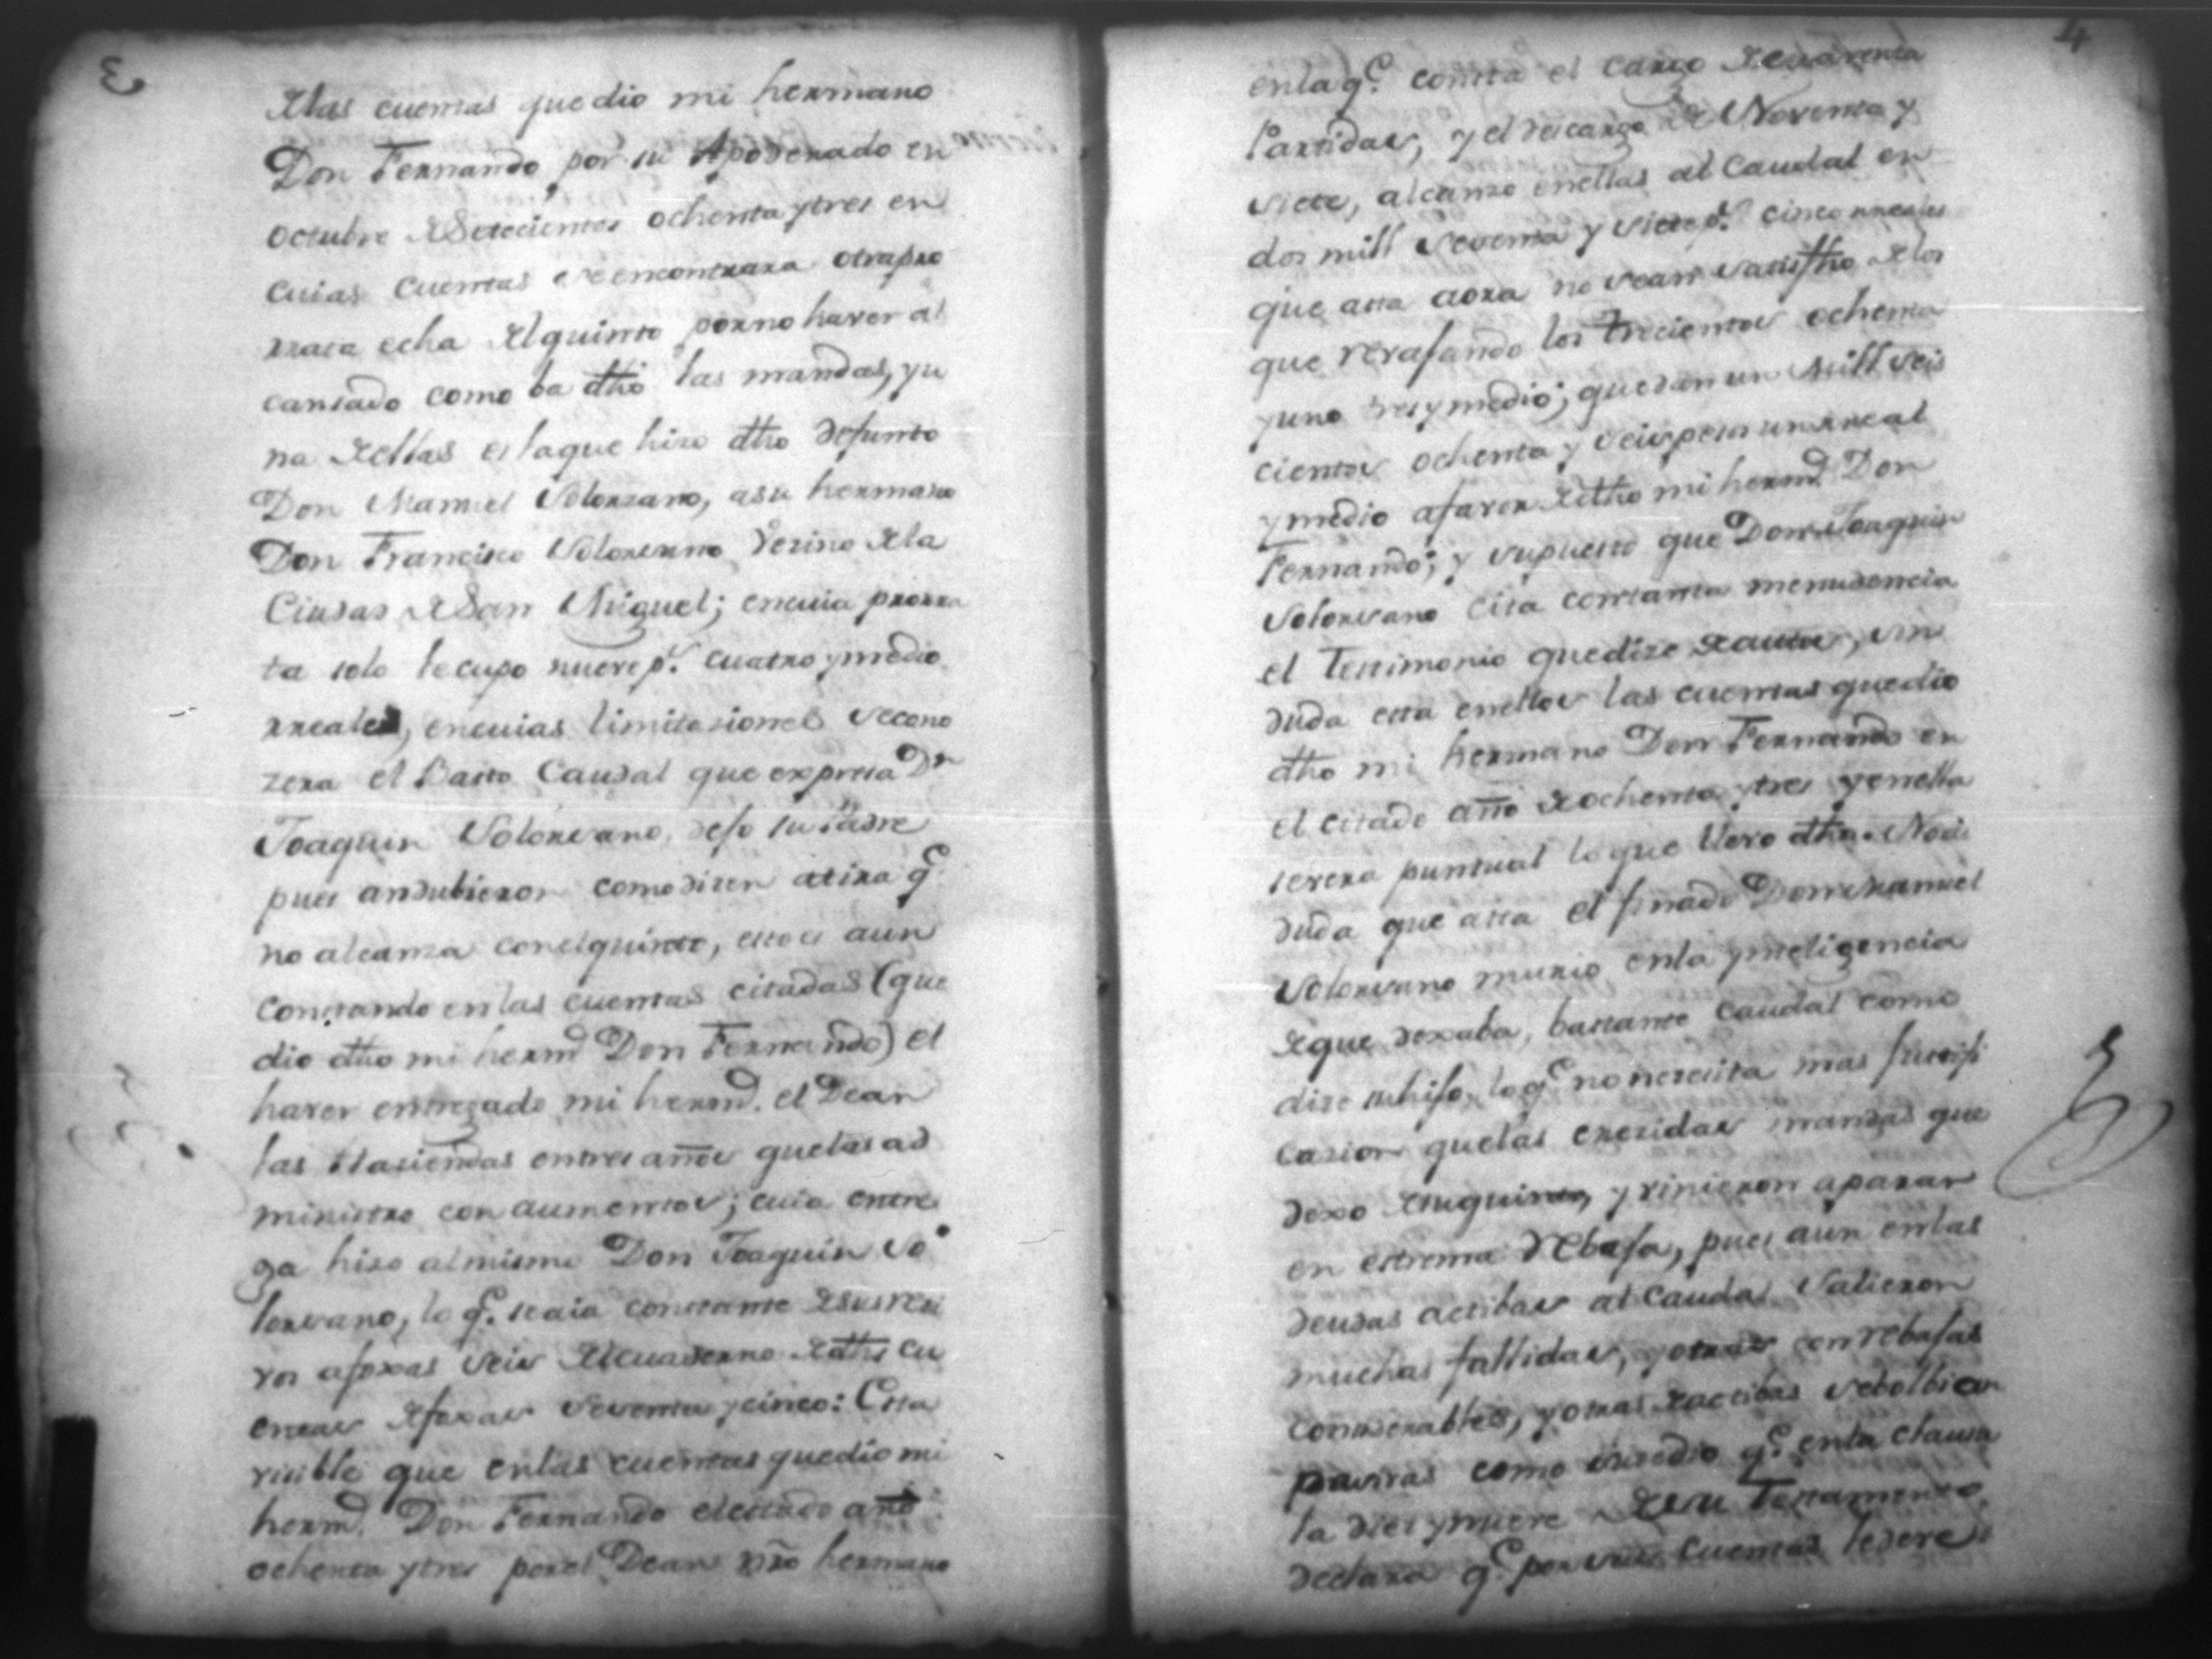 3
Delas cuentas que dio mi hermano
Don Fernando por su Apoderado en
octubre de Setecientos ochenta ytres en
cuias cuentas se encontrara otra pro
rrata echa del quinto por no haver al
cansado como ba dho las mandas, y u
na de ellas es la que hizo dho defunto
Don Manuel Solorzano, a su hermano
Don Francisco Solorzano Vezino de la
Ciudad de San Miguel; en cuia prorra
ta solo le cupo nueve ps. cuatro y medio
rreales, en cuias limitasiones se cono
zera el Basto Caudal que expresa Dn
Joaquin Solorzano, dejo su Padre
pues andubieron como dizen atira qe
no alcanza con el quinto, esto es aun
constando en las cuentas citadas (que
dio dho mi hermo Don Fernando) el
haver entregado mi hermo. el Dean
las Haziendas en tres años que las ad
ministro con aumentos; cuia entre
ga hizo al mismo Don Joaquin So
lorzano, lo qe. seaia constante de sus reci
vos afoxas seis del cuaderno de dhs cu
entas de foxas setenta y cinco: Esta
visible que en las cuentas que dio mi
hermo. Don Fernando el citado año
ochenta ytres por el Dean nro hermano
4
en la qe. consta el cargo de cuarenta
Partidas, y el descargo de Noventa y
siete, alcanzo en ellas al Caudal en
dos mill sesenta y siete ps. cinco rreales
que asta aora no sean satisfho de los
que revajando los trecientos ochenta
y uno tres y medio; quedan un Mill seis
cientos ochenta y seis pesos un rreal
y medio a favor de dho mi hermo Don
Fernando; y supuesto que Don Joaquin
Solorzano cita con tanta menudencia
el Testimonio que dize de autos, sin
duda esta en ellos las cuentas que dio
dho mi hermano Don Fernando en
el citado año de ochenta ytres y en ella
se vera puntual lo que llevo dho. No ai
duda que asta el finado Don Manuel
Solorzano murio en la ynteligencia
de que dexaba, bastante caudal como
dize su hijo, lo qe no necesita mas justifi
cazion que las crezidas mandas que
dexo de su quinto, y vinieron a parar
en estrema Rebaja, pues aun en las
deudas actibas al Caudal Salieron
muchas fallidas, y otras con rebajas
considerables, y otras de actibas se bolbieron
pasivas como susedio qe. en la clausu
la diez y nueve de su Testamento
declara qe. por sus cuentas le deve